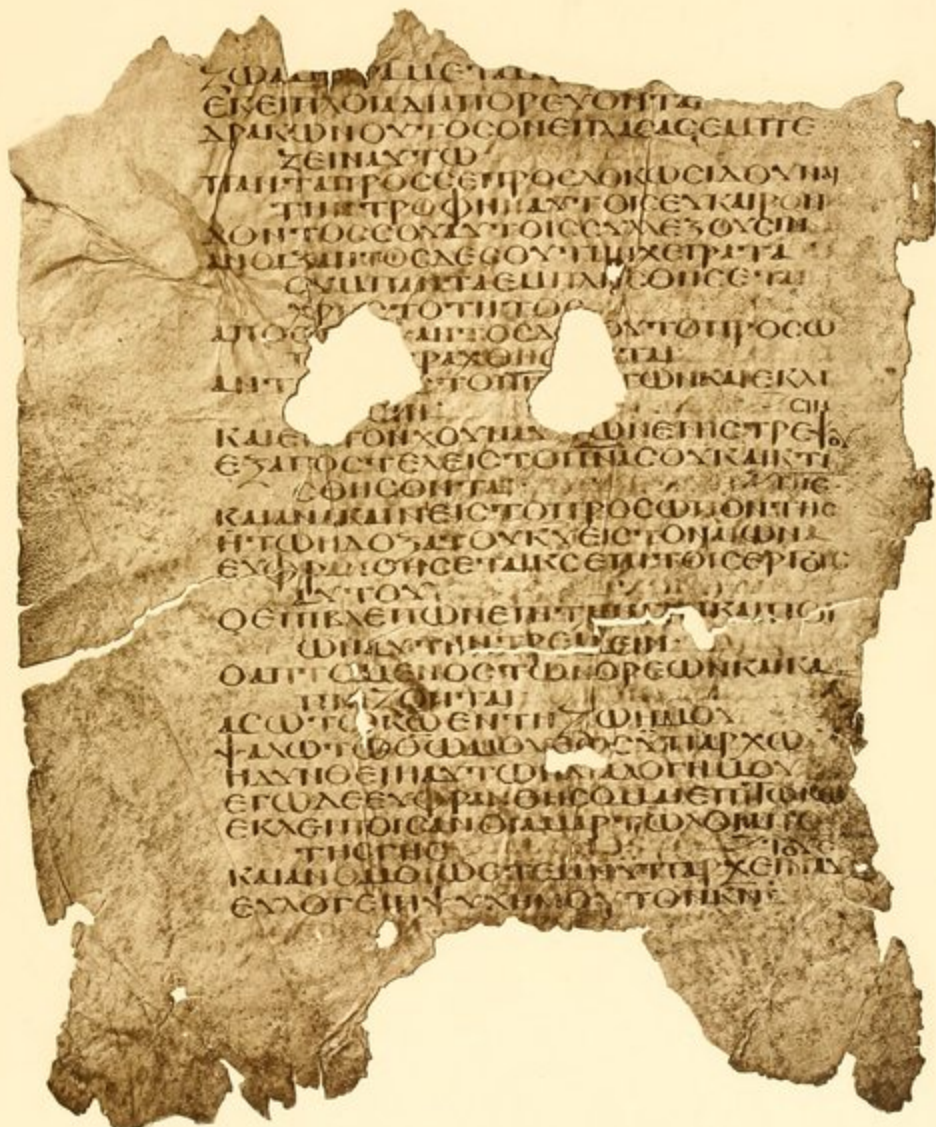 ΖΩΑ ΜΕΤΑ
ΕΚΕΙΠΛΟΙΑΔΙΑΠΟΡΕΥΟΝΤΑΙ
ΔΡΑΚΩΝΟΥΤΟCΟΝΕΠΛΑCΑCΕΜΠΕ
ΖΕΙΝΑΥΤΩ
ΠΑΝΤΑΠΡΟCCΕΠΡΟCΔΟΚΩCΙΔΟΥΝΑΙ
ΤΗΝΤΡΟΦΗΝΑΥΤΟΙCΕΥΚΑΙΡΟΝ
ΔΟΝΤΟCCΟΥΑΥΤΟΙCCΥΛΛΕΞΟΥCΙΝ
ΑΝΟΙΞΑΝΤΟCΔΕCΟΥΤΗΝΧΕΙΡΑΤΑ
CΥΜΠΑΝΤΑΕΜΠΛΗCΘΗCΕΤΑΙ
ΧΡΗCΤΟΤΗΤΟC
ΑΠΟC ΑΝΤΟCΔ ΟΥΤΟΠΡΟCΩ
Τ ΡΑΧΘΗC ΤΑΙ
ΑΝΤ ΤΟΠ ΤΩΝΚΑΙΕΚΛΙ
CΙΝ CΙΝ
ΚΑΙΕΙ ΤΟΝΧΟΥΝΑΥΤΩΝΕΠΙCΤΡΕΨΟΥ
ΕΞΑΠΟCΤΕΛΕΙCΤΟΠΝΑCΟΥΚΑΙΚΤΙ
CΘΗCΟΝΤΑΙ ΓΗC
ΚΑΙΑΝΑΚΑΙΝΕΙCΤΟΠΡΟCΩΠΟΝΤΗC
ΗΤΩΗΔΟΞΑΤΟΥΚΥΕΙCΤΟΝΑΙΩΝΑ
ΕΥΦΡΑΝΘΗCΕΤΑΙΚCΕΠΙΤΟΙCΕΡΓΟΙC
ΑΥΤΟΥ
ΟΕΠΙΒΛΕΠΩΝΕΠΙΤΗΝΓΗΝΚΑΙΠΟΙ
ΩΝΑΥΤΗΝΤΡΕΜΕΙΝ
ΟΑΠΤΟΜΕΝΟCΤΩΝΟΡΕΩΝΚΑΙΚΑ
ΠΝΙΖΟΝΤΑΙ
ΑCΩΤΩΚΩΕΝΤΗΖΩΗΜΟΥ
ΨΑΛΩΤΩΘΩΜΟΥΕΩCΥΠΑΡΧΩ
ΗΔΥΝΘΕΙΗΑΥΤΩΗΔΙΑΛΟΓΗΜΟΥ
ΕΓΩΔΕΕΥΦΡΑΝΘΗCΟΜΑΙΕΠΙΤΩΚΩ
ΕΚΛΕΙΠΟΙCΑΝΟΙΑΜΑΡΤΩΛΟΙΑΠΟ
ΤΗCΓΗC ΤΟΥC
ΚΑΙΑΝΟΜΟΙΩCΤΕΜΗΥΠΑΡΧΕΙΝΑΥ
ΕΥΛΟΓΕΙΗΨΥΧΗΜΟΥΤΟΝΚΝ